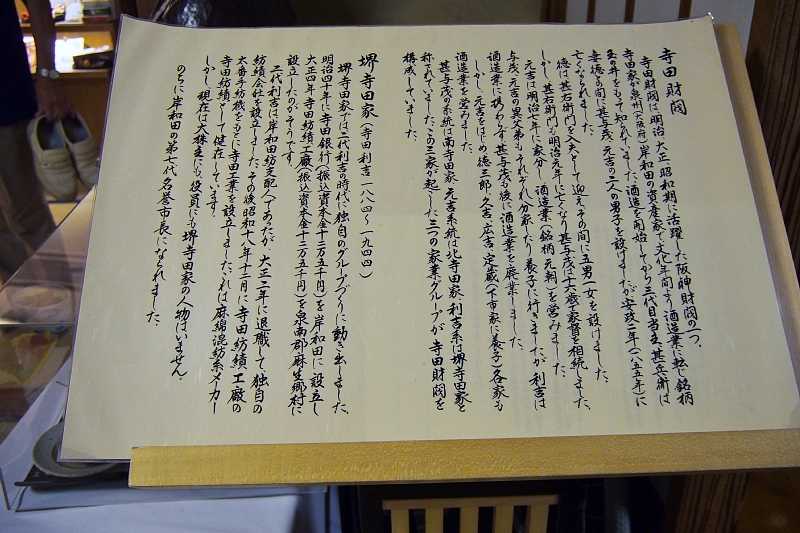 寺田財閥
寺田財閥は明治・大正・昭和期に活躍した阪神財閥の一つ。
寺田家が泉州(大阪府)岸和田の資産家で文化年間より酒造業に転じ銘柄
玉の井をもて知られていました。酒造を開始してから三代目当主甚兵衛は
妻徳の間に甚与茂、元吉の二人の男子を設けましたが安政二年(一八五五年)に
亡くなられました。
徳は甚右衛門を入夫として迎えその間に五男一女を設けました。
しかし、甚右衛門も明治元年に亡くなり甚与茂は十六歳で家督を相続しました。
元吉は明治七年に分家し、酒造業(銘柄 元朝)を営みました。
与茂、元吉の異父弟もそれぞれ分家したり養子に行きましたが利吉は
酒造業に携わらず甚与茂も後に酒造業を廃業しました。
しかし、元吉をはじめ徳三郎、久吉、広吉、定蔵(下市家に養子)各家も
酒造業を営みました。
甚与茂の系統は南寺田家、元吉系統は北寺田家、利吉系は堺寺田家と
称されていました。この三家が起こした三つの家業グループが寺田財閥を
構成していました。
堺寺田家(寺田利吉 一八八四〜一九四四)
堺寺田家では二代利吉の時代に独自のグループづくりに動き出しました。
明治四十年に寺田銀行(振込資本金十二万五千円)を岸和田に設立し
大正四年寺田紡績工廠(振込資本金十二万五千円)を泉南郡麻生郷村に
設立したのがそうです。
二代利吉は岸和田紡支配人であったが、大正二年に退職して独自の
紡績会社を設立しました。その後昭和八年十二月に寺田紡績工廠の
太番手紡機をもとに寺田工業を設立しました。これは麻綿混紡糸メーカー
寺田紡績として健在しています。
しかし、現在は大株主にも役員にも堺寺田家の人物はいません。
のちに岸和田の第七代名誉市長になられました。